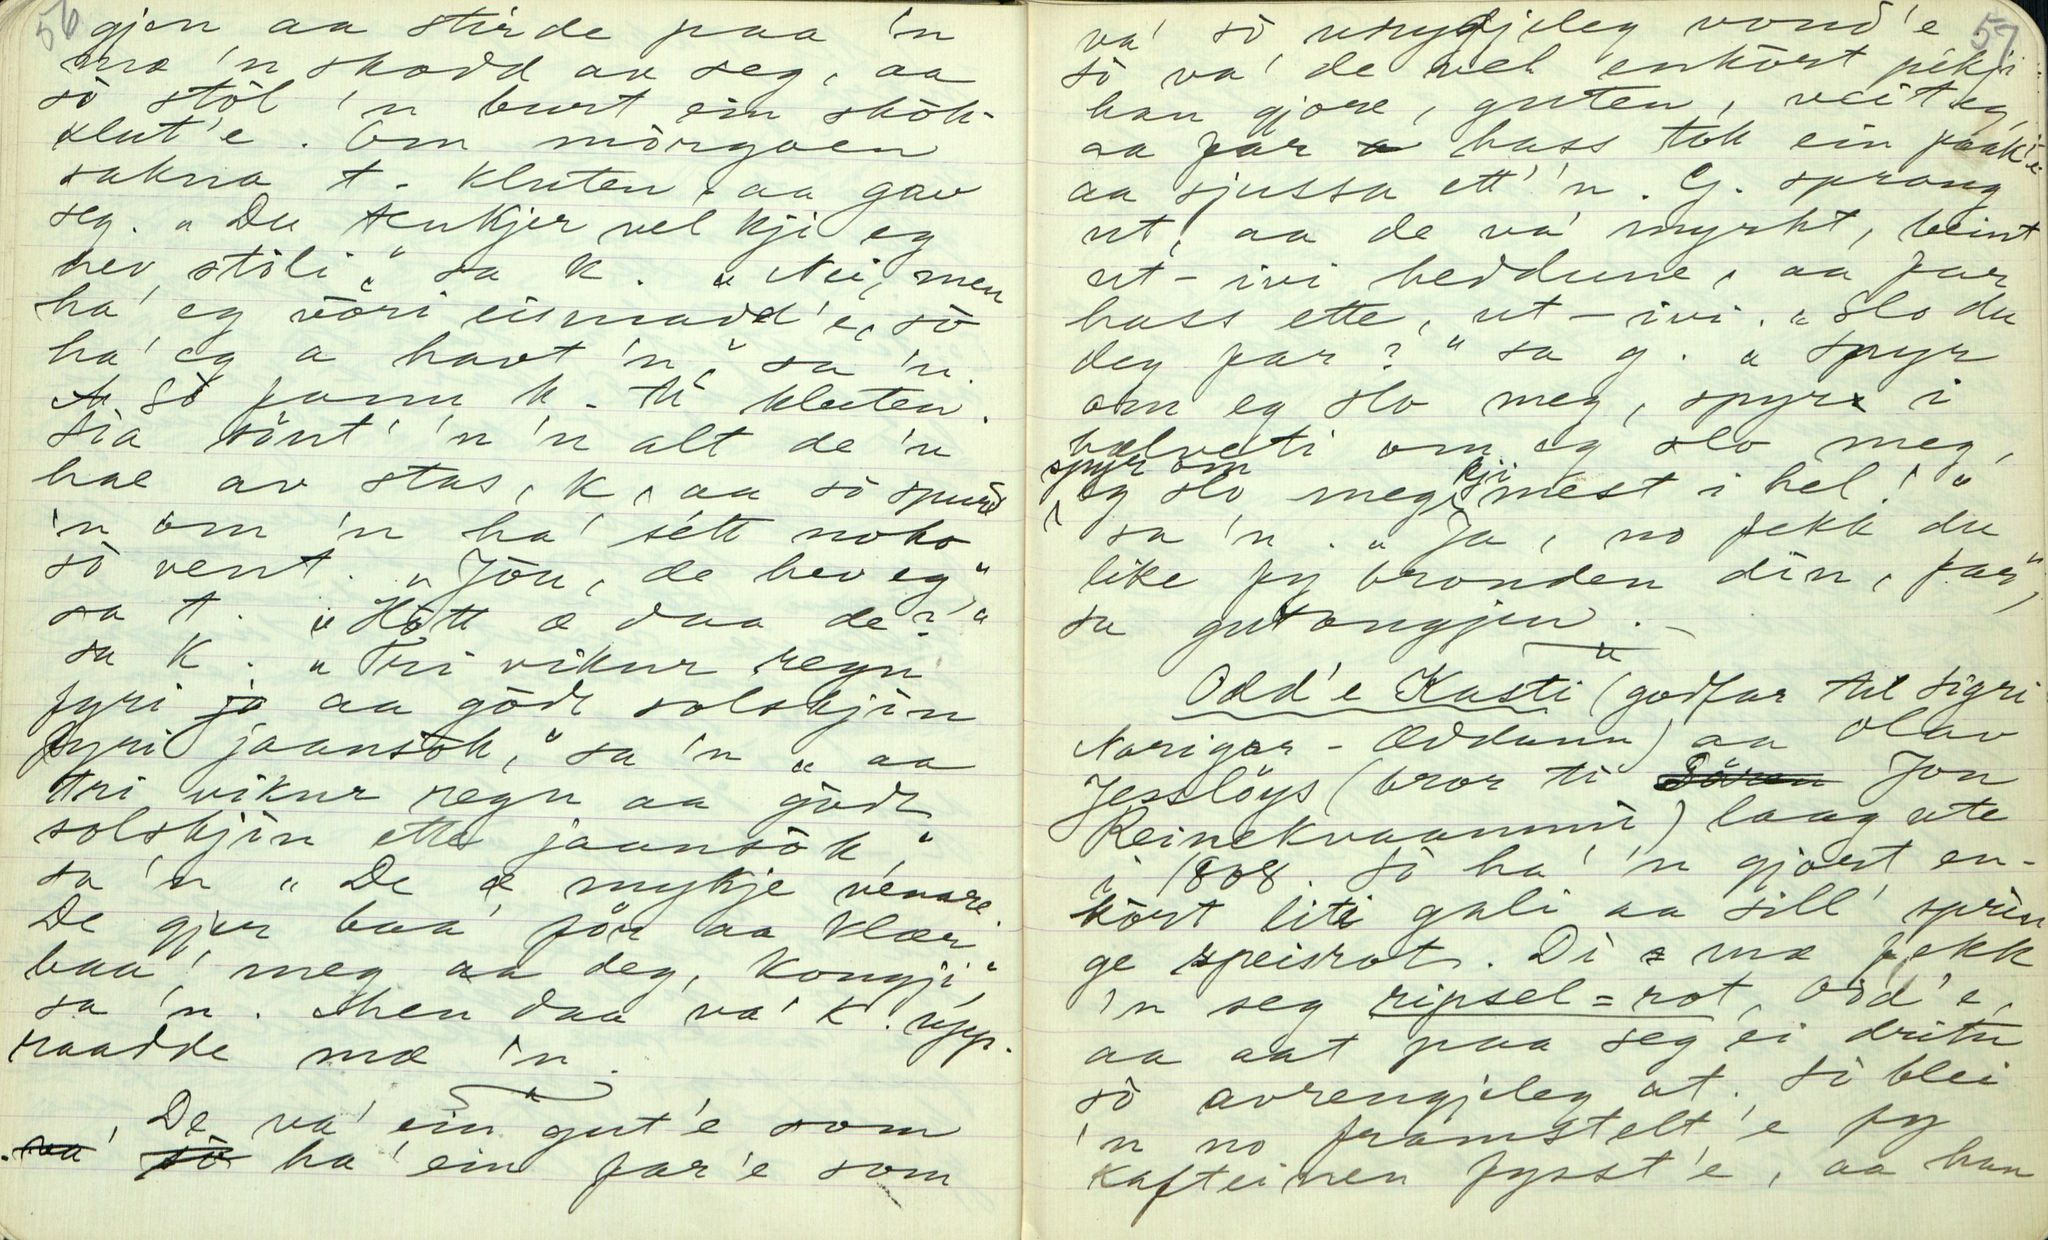 56
gjen aa stirde paa 'n
mæ 'n skodd av seg, aa
sò stòl 'n burt ein skòk-
klut'e. Om mòrgoen
sakna t. kluten, aa gav
seg. "Du tenkjer vel kji eg
hev stòli," sa K. "Nei, men
ha' eg vòri eismadd'e, sò
ha' eg a havt 'n," sa 'n.
Sò fann K. ti kluten.
Sia sònt' 'n 'n alt de 'n
hae av stas, K, aa sò spurde
'n om 'n ha' sétt noko
sò vent. "Jòu, de hev eg"
sa t. "Hòtt æ daa de?"
sa K. "Tri vikur regn
fyri jo aa gòdt solskjin
fyri jaansòk," sa 'n "aa
tri vikur regn aa gòdt
solskjin ette jaansòk,"
sa 'n "De æ mykje venare.
De gjer baa' fòr aa klær'
baa' meg aa deg, kongji,"
sa 'n. Men daa va' K. upp-
raadde mæ 'n.
De va' ein gut'e som
va' sò ha' ein far'e som
57
va' sò usygjeleg vond'e
Sò va' de vel enkòrt pikji
han gjore, guten, veit eg,
aa far a hass tok ein paak'e
aa sjussa ett' 'n. G. sprang
ut, aa de va' myrkt, beint
ut-ivi heddune, aa far
hass ette, ut-ivi. "Slo du
deg far?" sa g. "Spyr
om eg slo meg, spyr i
hælveti om eg slo meg,
spyr om eg slo meg kji mest i hel!"
sa 'n. "Ja, no fekk du
like fy bronden din, far",
sa gutongjen.
Odd'e Kasti (godfar til Sigri
Norigar-Oddunn) aa Olav
Jesslöys (bror ti Sòren Jon
Reinekvaammi) laag ute
i 1808. Sò ha' 'n gjort en-
kòrt liti gali aa sill' sprin
ge speisrot. Di mæ fekk
'n seg ripsel=rot, Odd'e,
aa aat paa seg ei dritu
sò avrengjeleg at. Sò blei
'n no framstelt'e fy
Kafteinen fysst'e, aa han